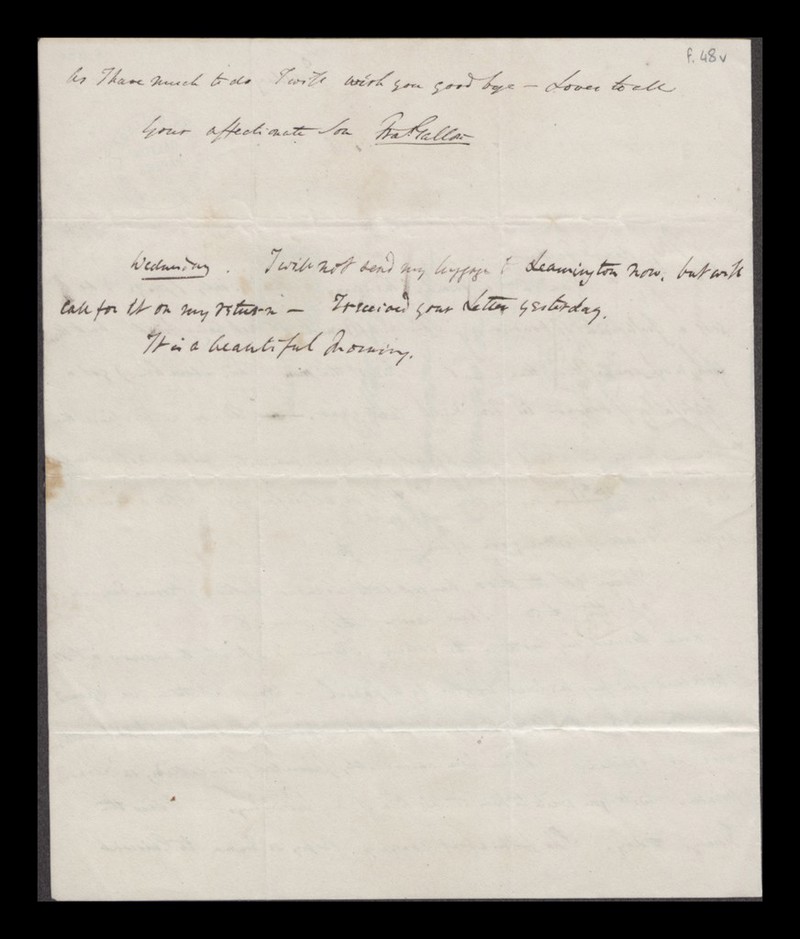 f. 48v
As I have much to do I will wish you good bye – Loves to all
Your affectionate Son Fra.s Galton
Wednesday. I will not send my luggage to Leamington now, but will
call for it on my return – I received your Letter yesterday.
It is a beautiful Morning.